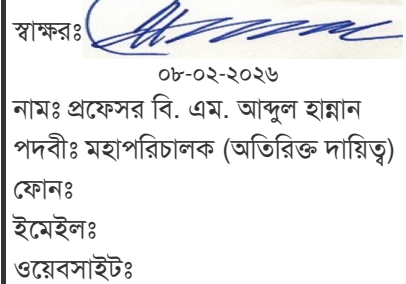 স্বাক্ষরঃ
০৮-০২-২০২৬
নামঃ প্রফেসর বি. এম. আব্দুল হান্নান
পদবীঃ মহাপরিচালক (অতিরিক্ত দায়িত্ব)
ফোনঃ
ইমেইলঃ
ওয়েবসাইটঃ